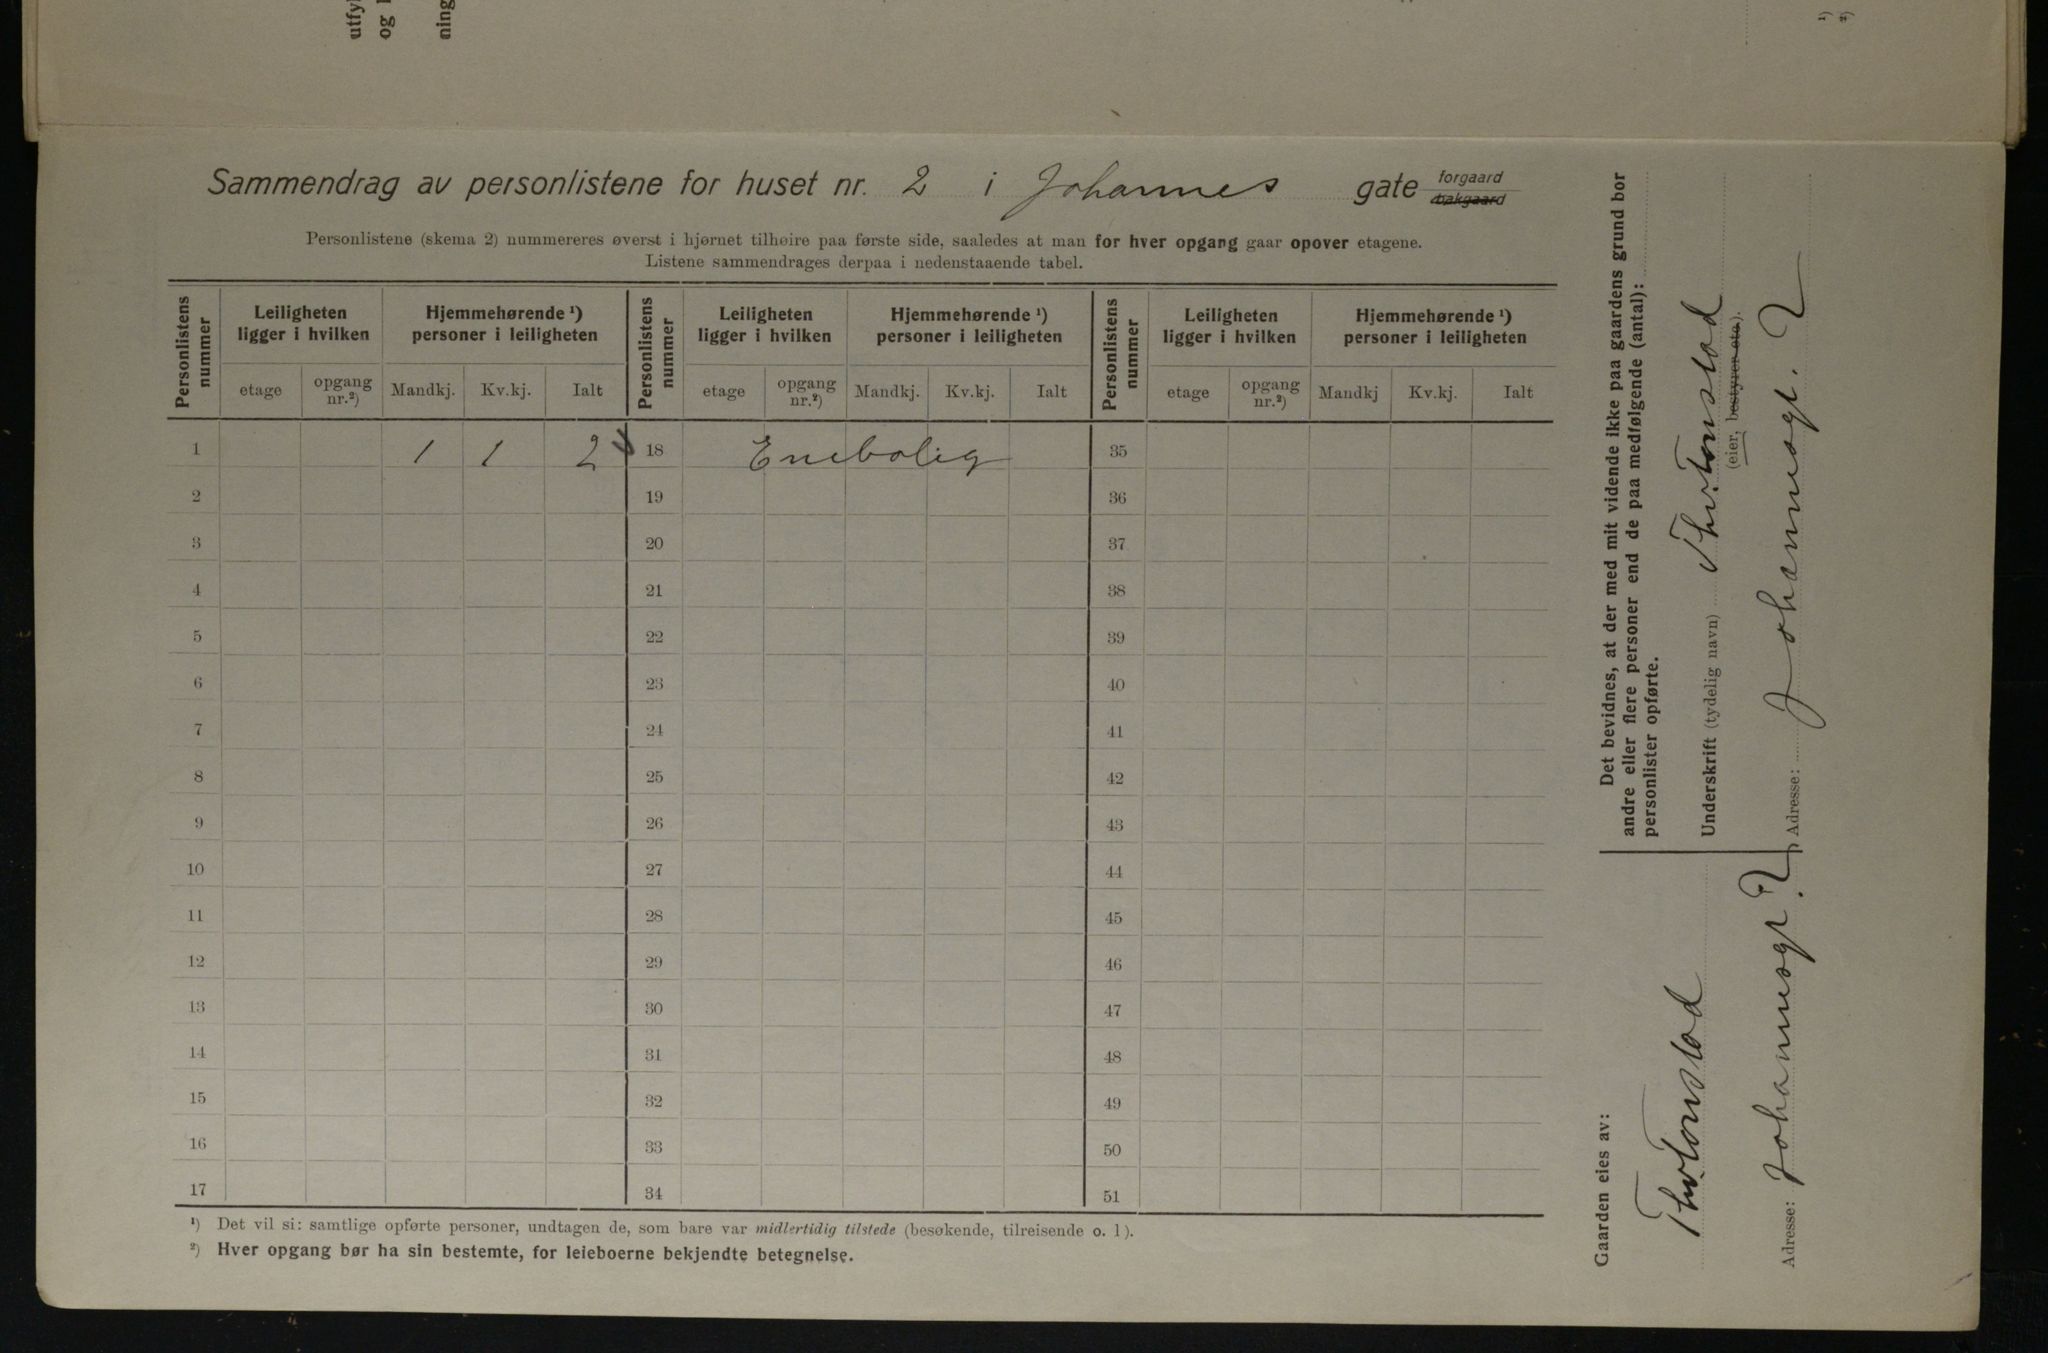 utfy
og
ning
¹)
²)
Sammendrag av personlistene for huset nr. 2 i Johannes gate forgaard bakgaard
Personlistene (skema 2) nummereres øverst i hjørnet tilhøire paa første side, saaledes at man for hver opgang gaar opover etagene.
Listene sammendrages derpaa i nedenstaaende tabel.
Personlistens nummer Leiligheten ligger i hvilken Hjemmehørende ¹) personer i leiligheten Personlistens nummer Leiligheten ligger i hvilken Hjemmehørende ¹) personer i leiligheten Personlistens nummer Leiligheten ligger i hvilken Hjemmehørende ¹) personer i leiligheten
etage opgang nr.²) Mandkj. Kv.kj. Ialt etage opgang nr.²) Mandkj. Kv.kj. Ialt etage opgang nr.²) Mandkj Kv.kj. Ialt
1 1 1 2 18 Enebolig 35
2 19 36
3 20 37
4 21 38
5 22 39
6 23 40
7 24 41
8 25 42
9 26 43
10 27 44
11 28 45
12 29 46
13 30 47
14 31 48
15 32 49
16 33 50
17 34 51
¹) Det vil si: samtlige opførte personer, undtagen de, som bare var midlertidig tilstede (besøkende, tilreisende o. l).
²) Hver opgang bør ha sin bestemte, for leieboerne bekjendte betegnelse.
Det bevidnes, at der med mit vidende ikke paa gaardens grund bor
andre eller flere personer end de paa medfølgende (antal):
personlister opførte.
Underskrift (tydelig navn)
(eier, bestyrer etc.).
Adresse: Johannesgt. 2
Gaarden eies av:
Adresse: Johannesgt. 2